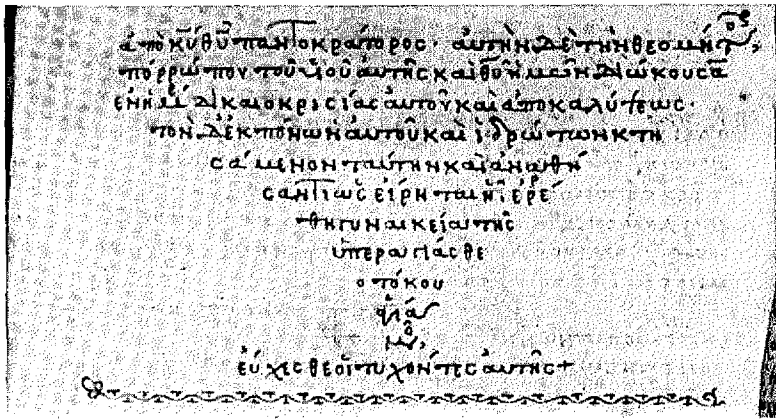 ἀπὸ κ̅υ̅ θ̅υ̅ παντοκράτορος· αὐτὴν δὲ τὴν
πόρρωπον τοῦ υἱοῦ αὐτῆς καὶ θ̅υ̅ ἡμῶν διώκουσα
δικαιοκρισίας αὐτοῦ καὶ ἀποκαλύψεως·
τὸν δὲ ἐκ πόνων αὐτοῦ καὶ ἱδρώτων κτη
σάμενον ταύτην καὶ ἀναθή
σαντι ὡς εἴρηται
γυναικεία τῆς
ὑπεραγίας θε
οτόκου
εὔχεσθε οἱ τυχόντες αὐτῆς +